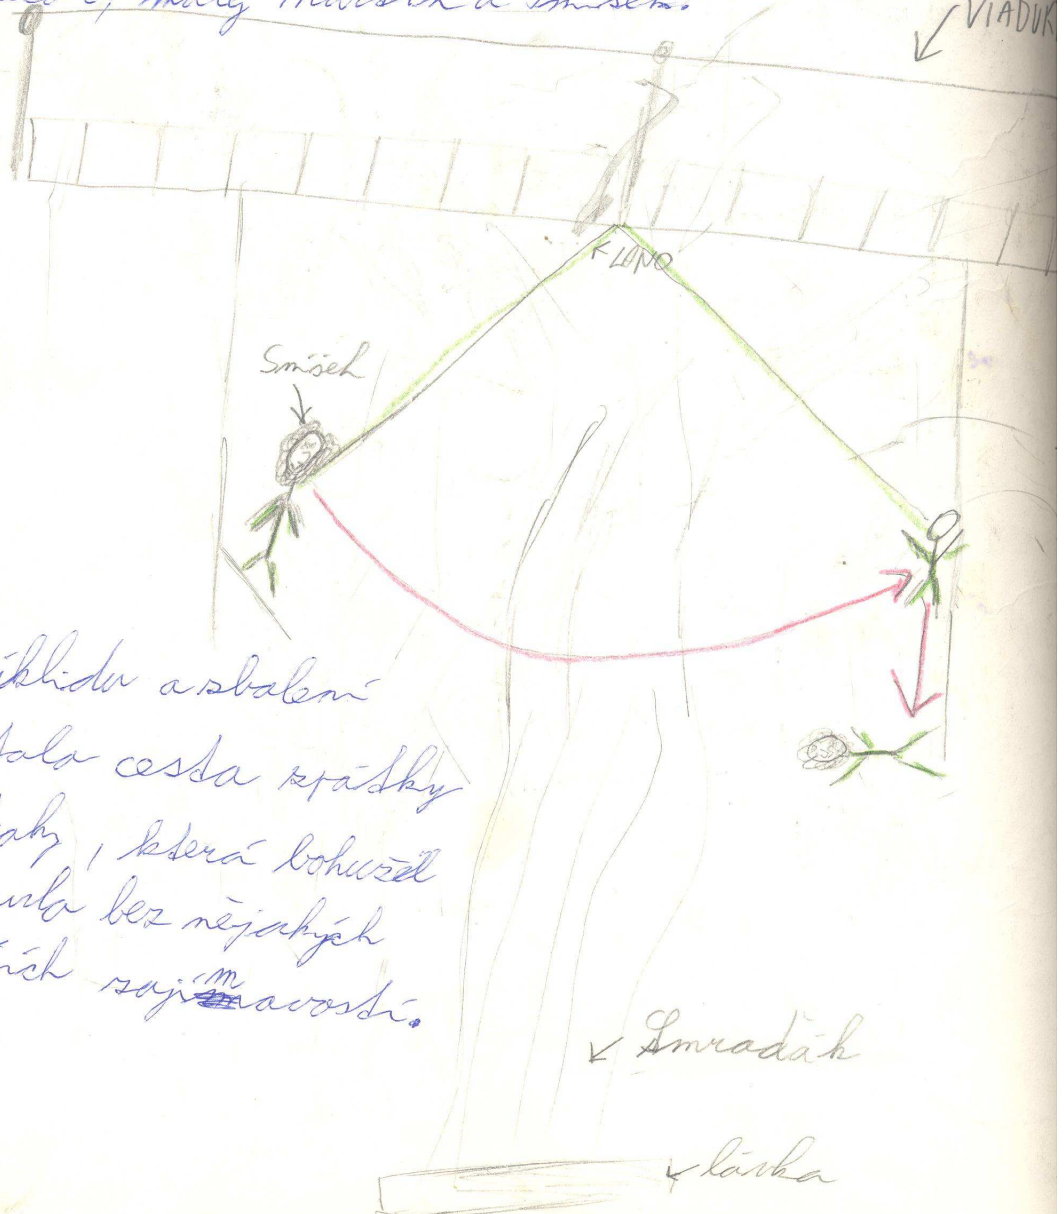 malý Mařík a Smíšek.
VIADUK
LANO
Smíšek
úklidu a sbalení
cesta zpátky
, která bohužel
bez nějakých
zajímavostí.
Smraďák
lávka